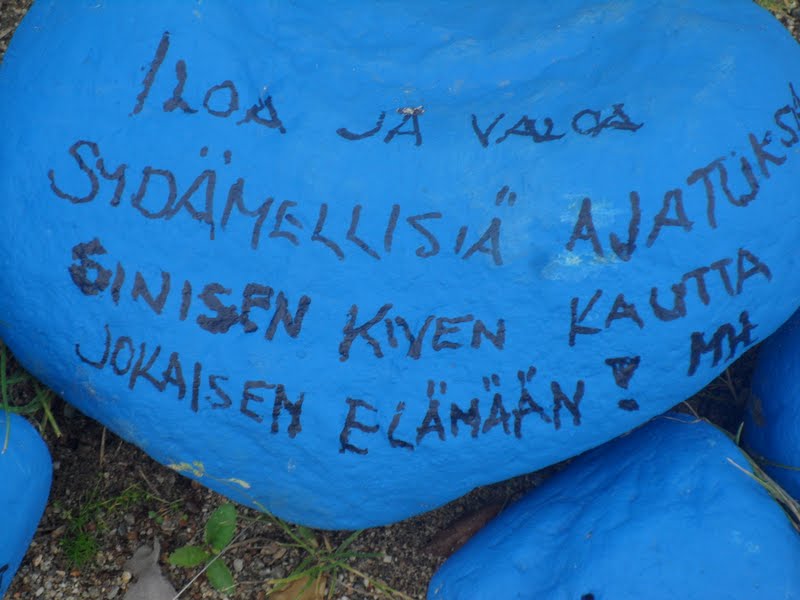 ILOA JA VALOA
SYDÄMELLISIÄ AJATUKSIA
SINISEN KIVEN KAUTTA
JOKAISEN ELÄMÄÄN! MH